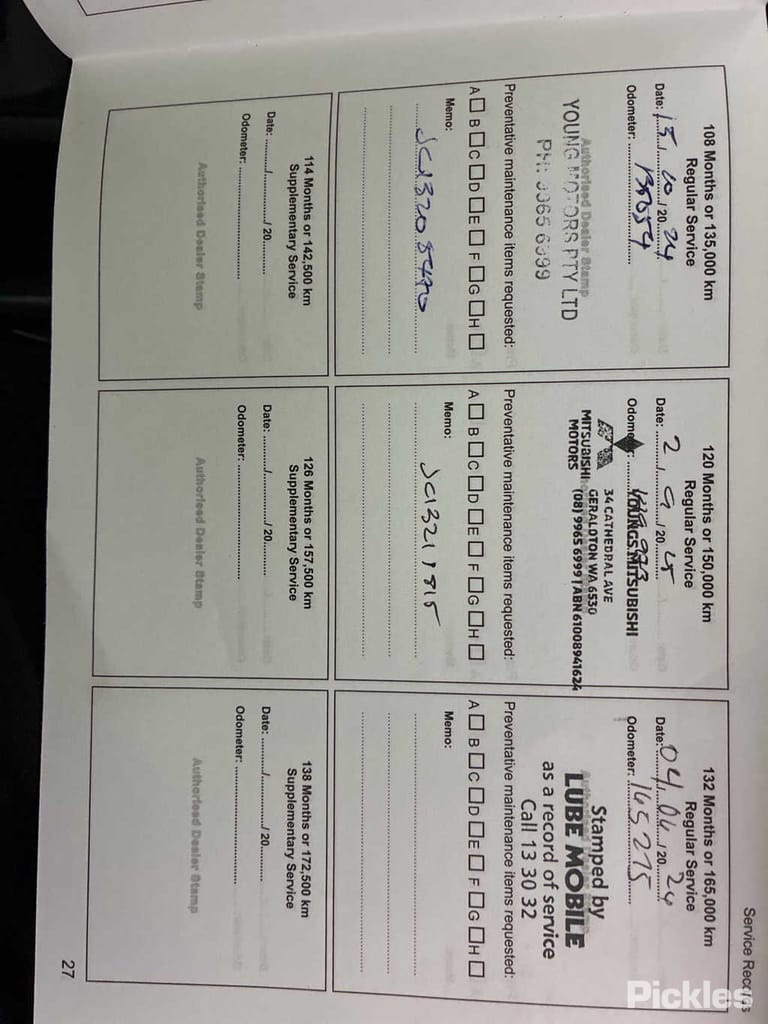 Service Records
108 Months or 135,000 km
Regular Service
Date: 13/10/20 24
Odometer:
Authorised Dealer Stamp
YOUNG MOTORS PTY LTD
Preventative maintenance items requested:
A B C D E F G H
Memo:
120 Months or 150,000 km
Regular Service
Date: 2/9/20
Odometer:
YOUNGS MITSUBISHI
34 CATHEDRAL AVE
GERALDTON WA 6530
(08) 9965 6999 | ABN 61008941624
MITSUBISHI
MOTORS
Preventative maintenance items requested:
A B C D E F G H
Memo:
JC13211815
132 Months or 165,000 km
Regular Service
Date: 04/06/20 24
Odometer: 165275
Stamped by
LUBE MOBILE
as a record of service
Call 13 30 32
Preventative maintenance items requested:
A B C D E F G H
Memo:
114 Months or 142,500 km
Supplementary Service
Date: ........./........./ 20.........
Odometer:
Authorised Dealer Stamp
126 Months or 157,500 km
Supplementary Service
Date: ........./........./ 20.........
Odometer:
Authorised Dealer Stamp
138 Months or 172,500 km
Supplementary Service
Date: ........./........./ 20.........
Odometer:
Authorised Dealer Stamp
27
Pickles